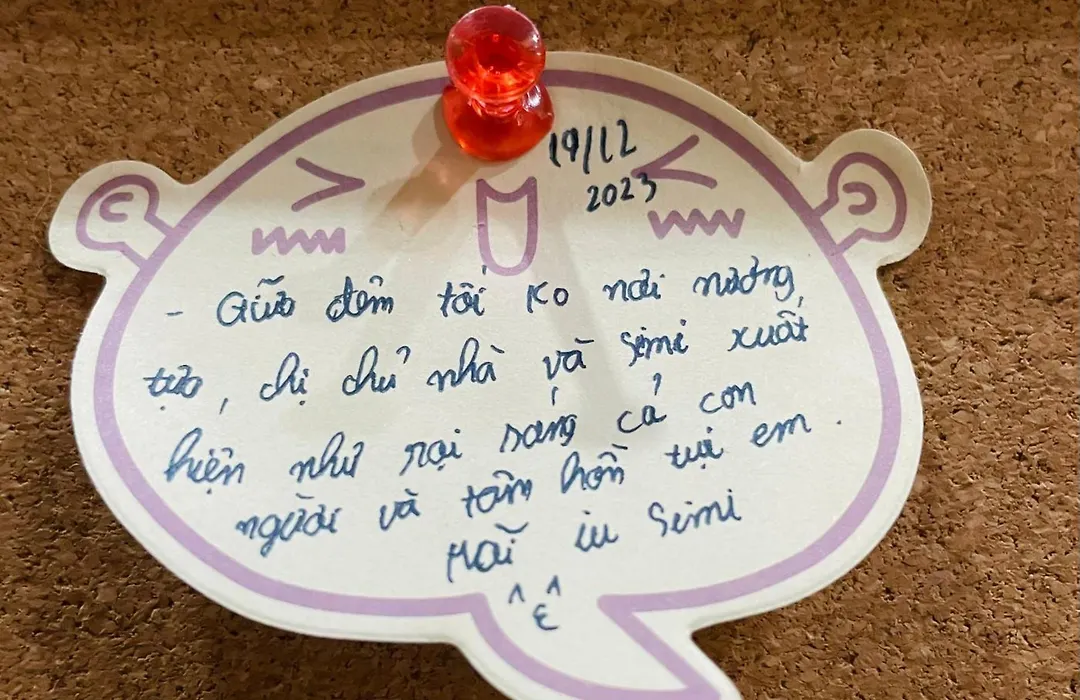 19/12
2023
- Giữa đêm tối ko nơi nương
tựa, chị chủ nhà và Simi xuất
hiện như rọi sáng cả con
người và tâm hồn tụi em.
Mãi iu Simi
^ε^